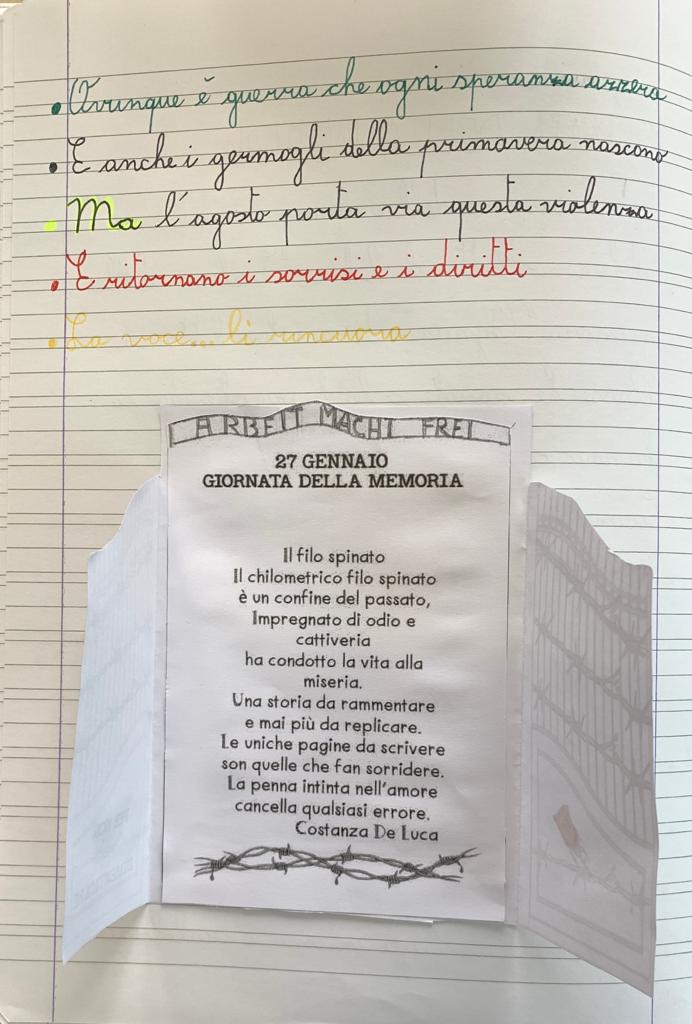 • Ovunque è guerra che ogni speranza azzera
• E anche i germogli della primavera nascono
• Ma l'agosto porta via questa violenza
• E ritornano i sorrisi e i diritti
• La voce... li rincuora
ARBEIT MACHT FREI
27 GENNAIO
GIORNATA DELLA MEMORIA
Il filo spinato
Il chilometrico filo spinato
è un confine del passato,
Impregnato di odio e
cattiveria
ha condotto la vita alla
miseria.
Una storia da rammentare
e mai più da replicare.
Le uniche pagine da scrivere
son quelle che fan sorridere.
La penna intinta nell'amore
cancella qualsiasi errore.
Costanza De Luca